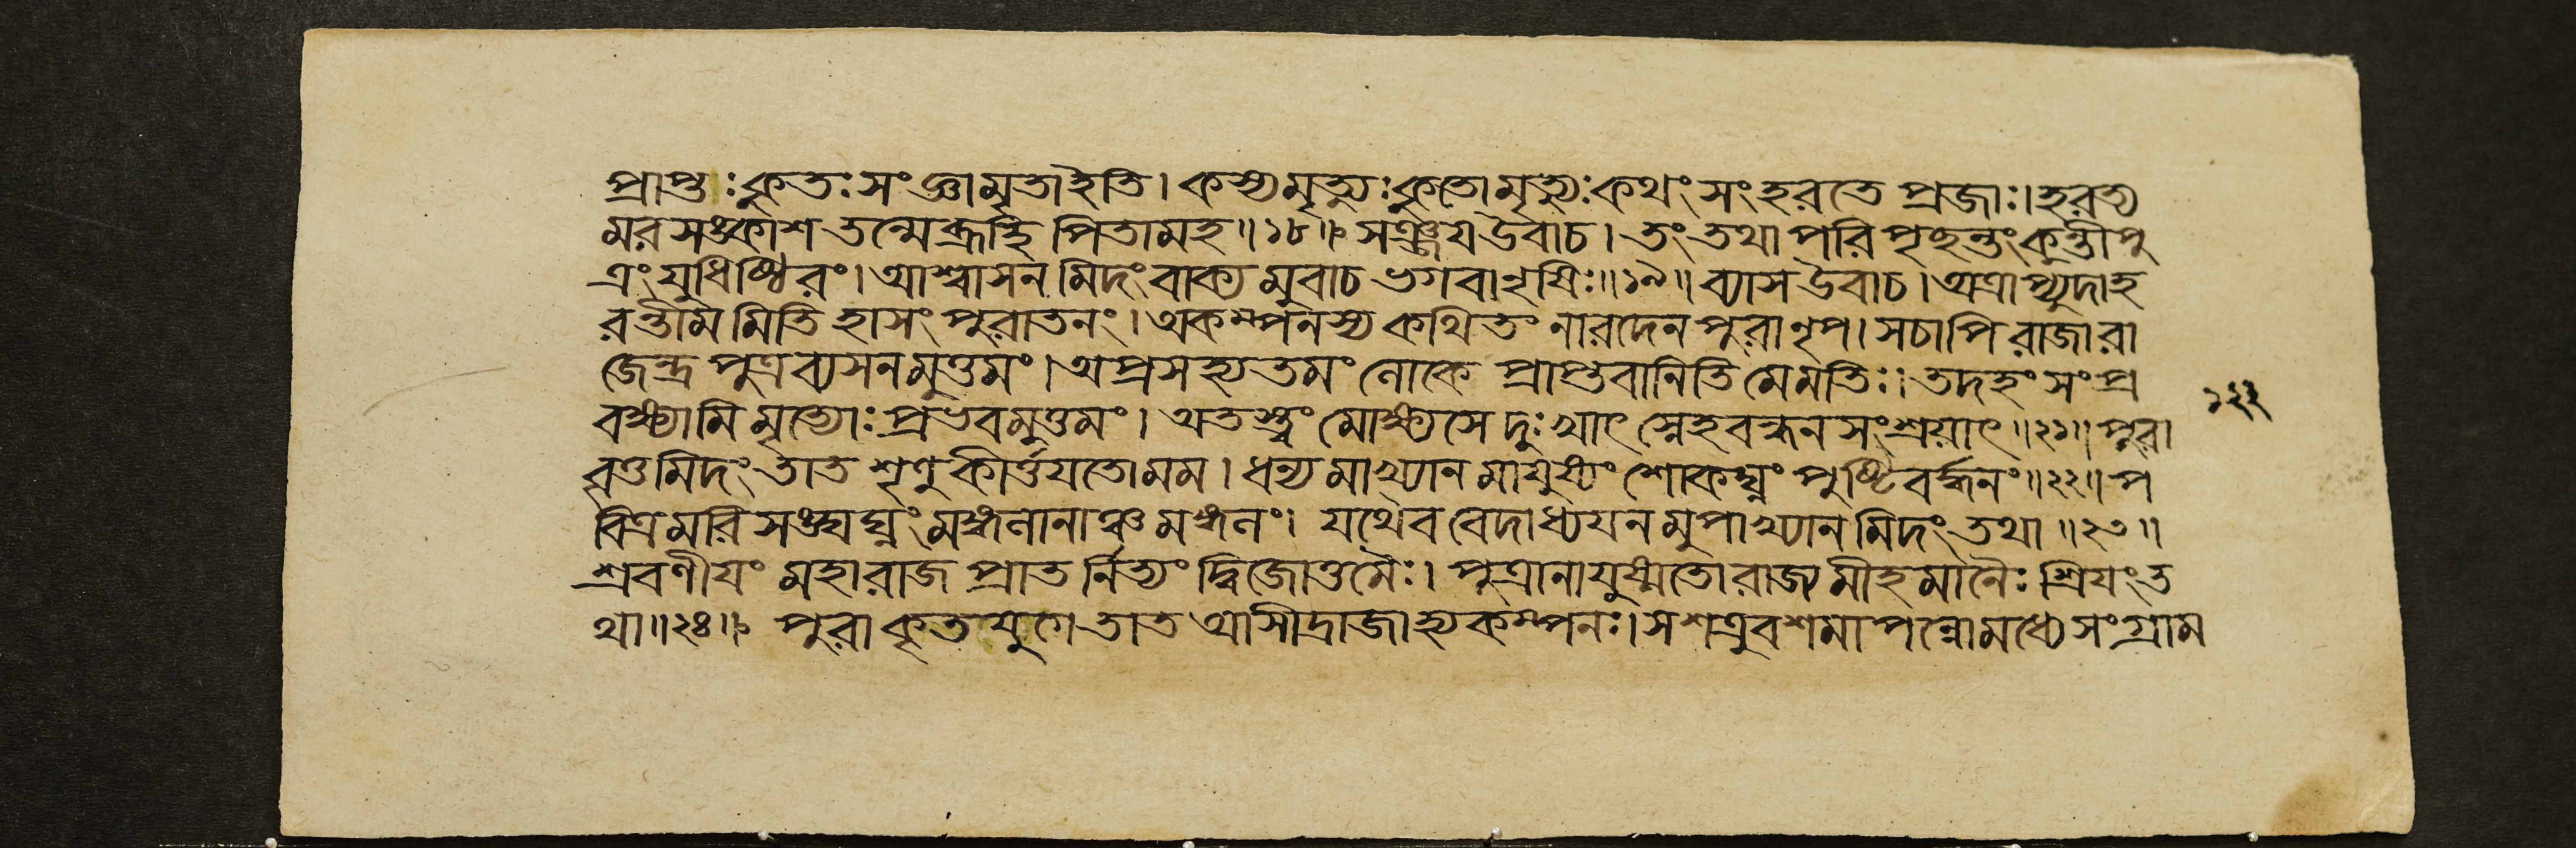 প্রাপ্তঃ কুতঃ সংজ্ঞামৃতাইতি। কস্যমৃত্যুঃ কুতোমৃত্যুঃ কথং সংহরতে প্রজাঃ। হরত্য
মরসঙ্কাশ তন্মেব্রূহি পিতামহ॥১৮॥ সঞ্জয়উবাচ। তং তথা পরিপৃছন্তং কুন্তীপু
ত্রং যুধিষ্ঠিরং। আশ্বাসনমিদং বাক্যমুবাচ ভগবানৃষিঃ॥১৯॥ ব্যাসউবাচ। অত্রাপ্যুদাহ
রন্তীমমিতিহাসং পুরাতনং। অকম্পনস্য কথিতং নারদেন পুরানৃপ। সচাপি রাজারা
জেন্দ্র পুত্রব্যসনমুত্তমং। অপ্রসহ্যতমং লোকে প্রাপ্তবানিতি মেমতিঃ। তদহং সংপ্র
বক্ষ্যামি মৃত্যোঃ প্রভবমুত্তমং। অতস্ত্বং মোক্ষ্যসে দুঃখাৎ স্নেহবন্ধনসংশ্রয়াৎ॥২১॥ পুরা
বৃত্তমিদং তাত শৃণু কীর্ত্তয়তোমম। ধন্যমাখ্যানমায়ুষ্যং শোকঘ্নং পুষ্টিবর্দ্ধনং॥২২॥ প
বিত্রমরিসঙ্ঘঘ্নং মঙ্গলানাঞ্চমঙ্গলং। যথৈব বেদাধ্যয়নমুপাখ্যানমিদং তথা॥২৩॥
শ্রবণীয়ং মহারাজ প্রাতর্নিত্যং দ্বিজোত্তমৈঃ। পুত্রানায়ুষ্মতোরাজ্যমীহমানৈঃ শ্রিয়ং ত
থা॥২৪॥ পুরা কৃতযুগে তাত আসীদ্রাজাহ্যকম্পনঃ। সশত্রুবশমাপন্নোমধ্যেসংগ্রাম